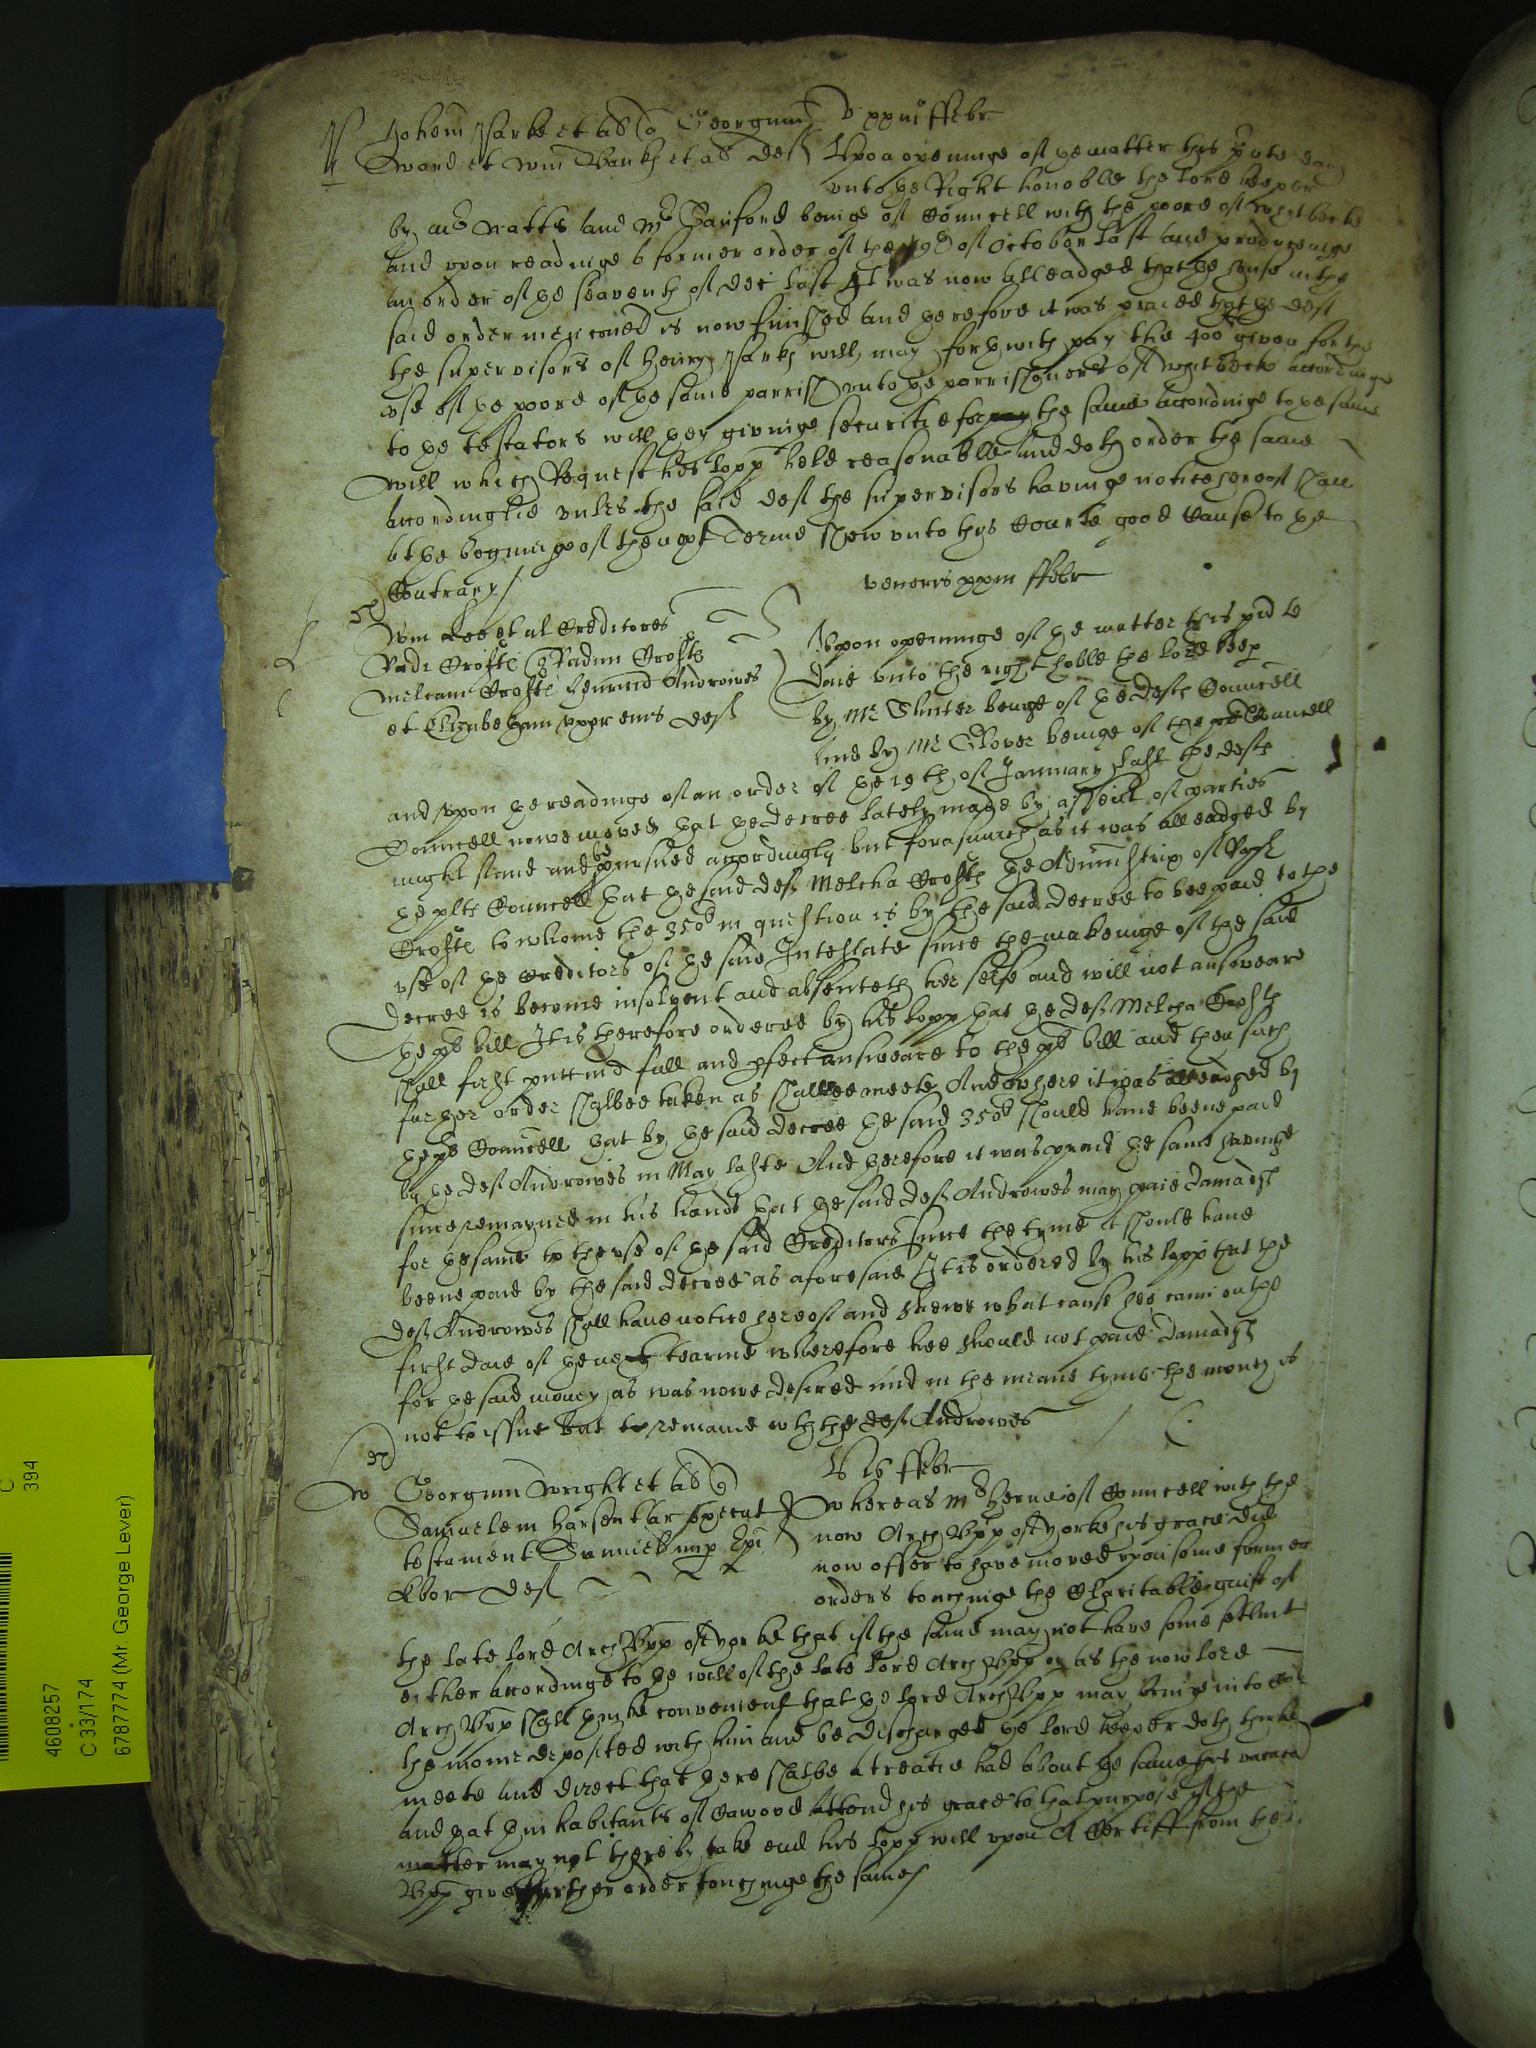 Johem Parke et al q Georgium V xxiii ffebr
Ward et Wm Bankes et al deftes Upon openinge of ye matter this pnte day
unto ye Right honoble the Lord keeper
by Mr Watts and Mr Sanford beinge of Councell with the poore of
and upon readinge a former order of the 19th of October last and produceinge
an order of ye seaventh of Dec last It was now alleadged that ye house in the
said order mencioned is now finished and therefore it was praied that ye deftes
the supervisors of Henry Parkes will may forthwith pay the 400li given for the
use of ye poore of ye same parrish unto ye parrishoners of accordinge
to ye testators will they givinge securitie for the same accordinge to ye same
will which Request his Lopp held reasonable and doth order the same
accordinglie unles the said deftes the supervisors havinge notice hereof shall
at ye beginninge of the next Terme shew unto this Courte good Cause to ye
Contrary
Veneris xxiii ffebr
Wm Lee et al Creditores
Upon openinge of ye matter this pnte
daie unto the right hoble the lord keep
Melcam Crofte Henricu Androwes
et Elizabetham uxor eius deftes
by Mr Shuter beinge of ye deftes Councell
and by Mr Glover beinge of the plts Councell
and upon ye readinge of an order of ye 19th of January last the deftes
Councell nowe moved that ye decree lately made by assent of parties
might stand and be pursued accordingly but forasmuch as it was alleadged by
ye plts Councell that ye said deft Melcha Crofte ye Administrix of
Crofte to whome the 350li in question is by the said decree to bee paid to the
use of ye Creditors of ye said Intestate since the makeinge of the said
decree is become insolvent and absenteth her selfe and will not answeare
ye plts bill It is therefore ordered by his Lopp that ye deft Melcha Crofte
shall first putt in a full and pfect answeare to the plts bill and then such
further order shalbee taken as shalbee meete And where it was alleadged by
ye plts Councell that by ye said decree ye said 350li should have beene paid
by ye deft Androwes in May laste And therefore it was praid ye same havinge
since remayned in his hands that ye said deft Androwes may paie damadges
for ye same to the use of ye said Creditors since the tyme it should have
beene paid by the said decree as aforesaid It is ordered by his Lopp that the
deft Androwes shall have notice hereof and shewe what cause hee cann on the
first daie of ye next tearme wherefore hee should not paie damadges
for ye said money as was nowe desired and in the meane tyme the money is
not to issue but to remaine with the deft Androwes
ffebr
Georgium Wright et al q
Samuelem Harsent ar execut
testament Samuelis nup Epi
Ebor deft
Whereas Mr Herne of Councell with the
now Arch Bpp of Yorke his grace did
now offer to have moved upon some former
orders touchinge the Charitable guift of
the late lord Arch Bpp of Yorke that if the same may not have some setlmt
either accordinge to ye will of the late Lord Arch Bpp or as the now lord
Arch Bpp shall thinke convenient that ye lord Arch Bpp may bringe into Cort
the monie deposited with him and be discharged ye lord keeper doth thinke
meete and direct that there shalbe a treatie had about ye same this vacacon
and that ye inhabitants of Cawood attend his grace to that purpose if the
matter may not thereby take end his Lopp will upon a Certiff from the
Bpp give further order touchinge the same
4608257
C 33/174
6787774 (Mr. George Lever)
C
394